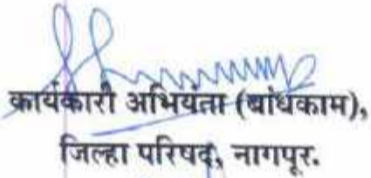 कार्यकारी अभियंता (बांधकाम),
जिल्हा परिषद, नागपूर.